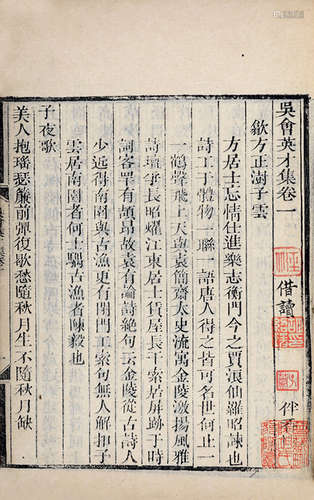 吳會英才集卷一
歙方正澍子雲
方居士忘情仕進樂志衡門今之賈浪仙羅昭諫也
詩工于體物一聯一語唐人得之皆可名世何止一
鶴聲飛上天哉袁簡齋太史流寓金陵激揚風雅
詩壇爭長昭耀江東居士賃屋長干索居屏跡于時
詞客罕有頡昂故袁有論詩絕句云金陵從古詩人
少近得南園與古漁更有閉門工索句無人解扣子
雲居南園者何士顒古漁者陳毅也
子夜歌
美人抱瑤瑟簾前彈復歇愁隨秋月生不隨秋月缺
借讀